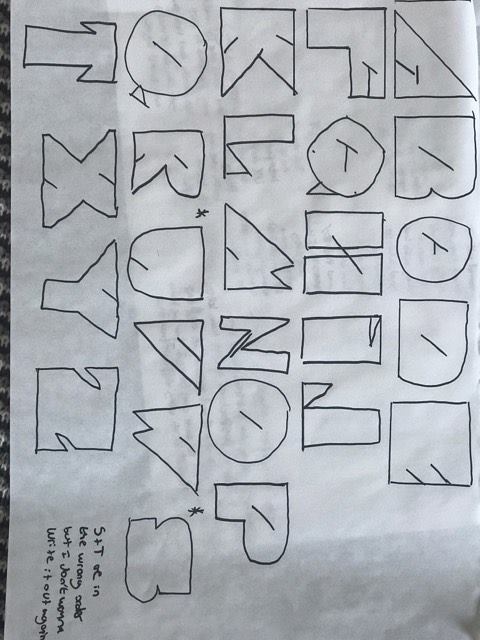 A B C D E
F G H I J
K L M N O P
Q R * U V W * S
T X Y Z
S+T are in
the wrong order
but I don't wanna
write it out again